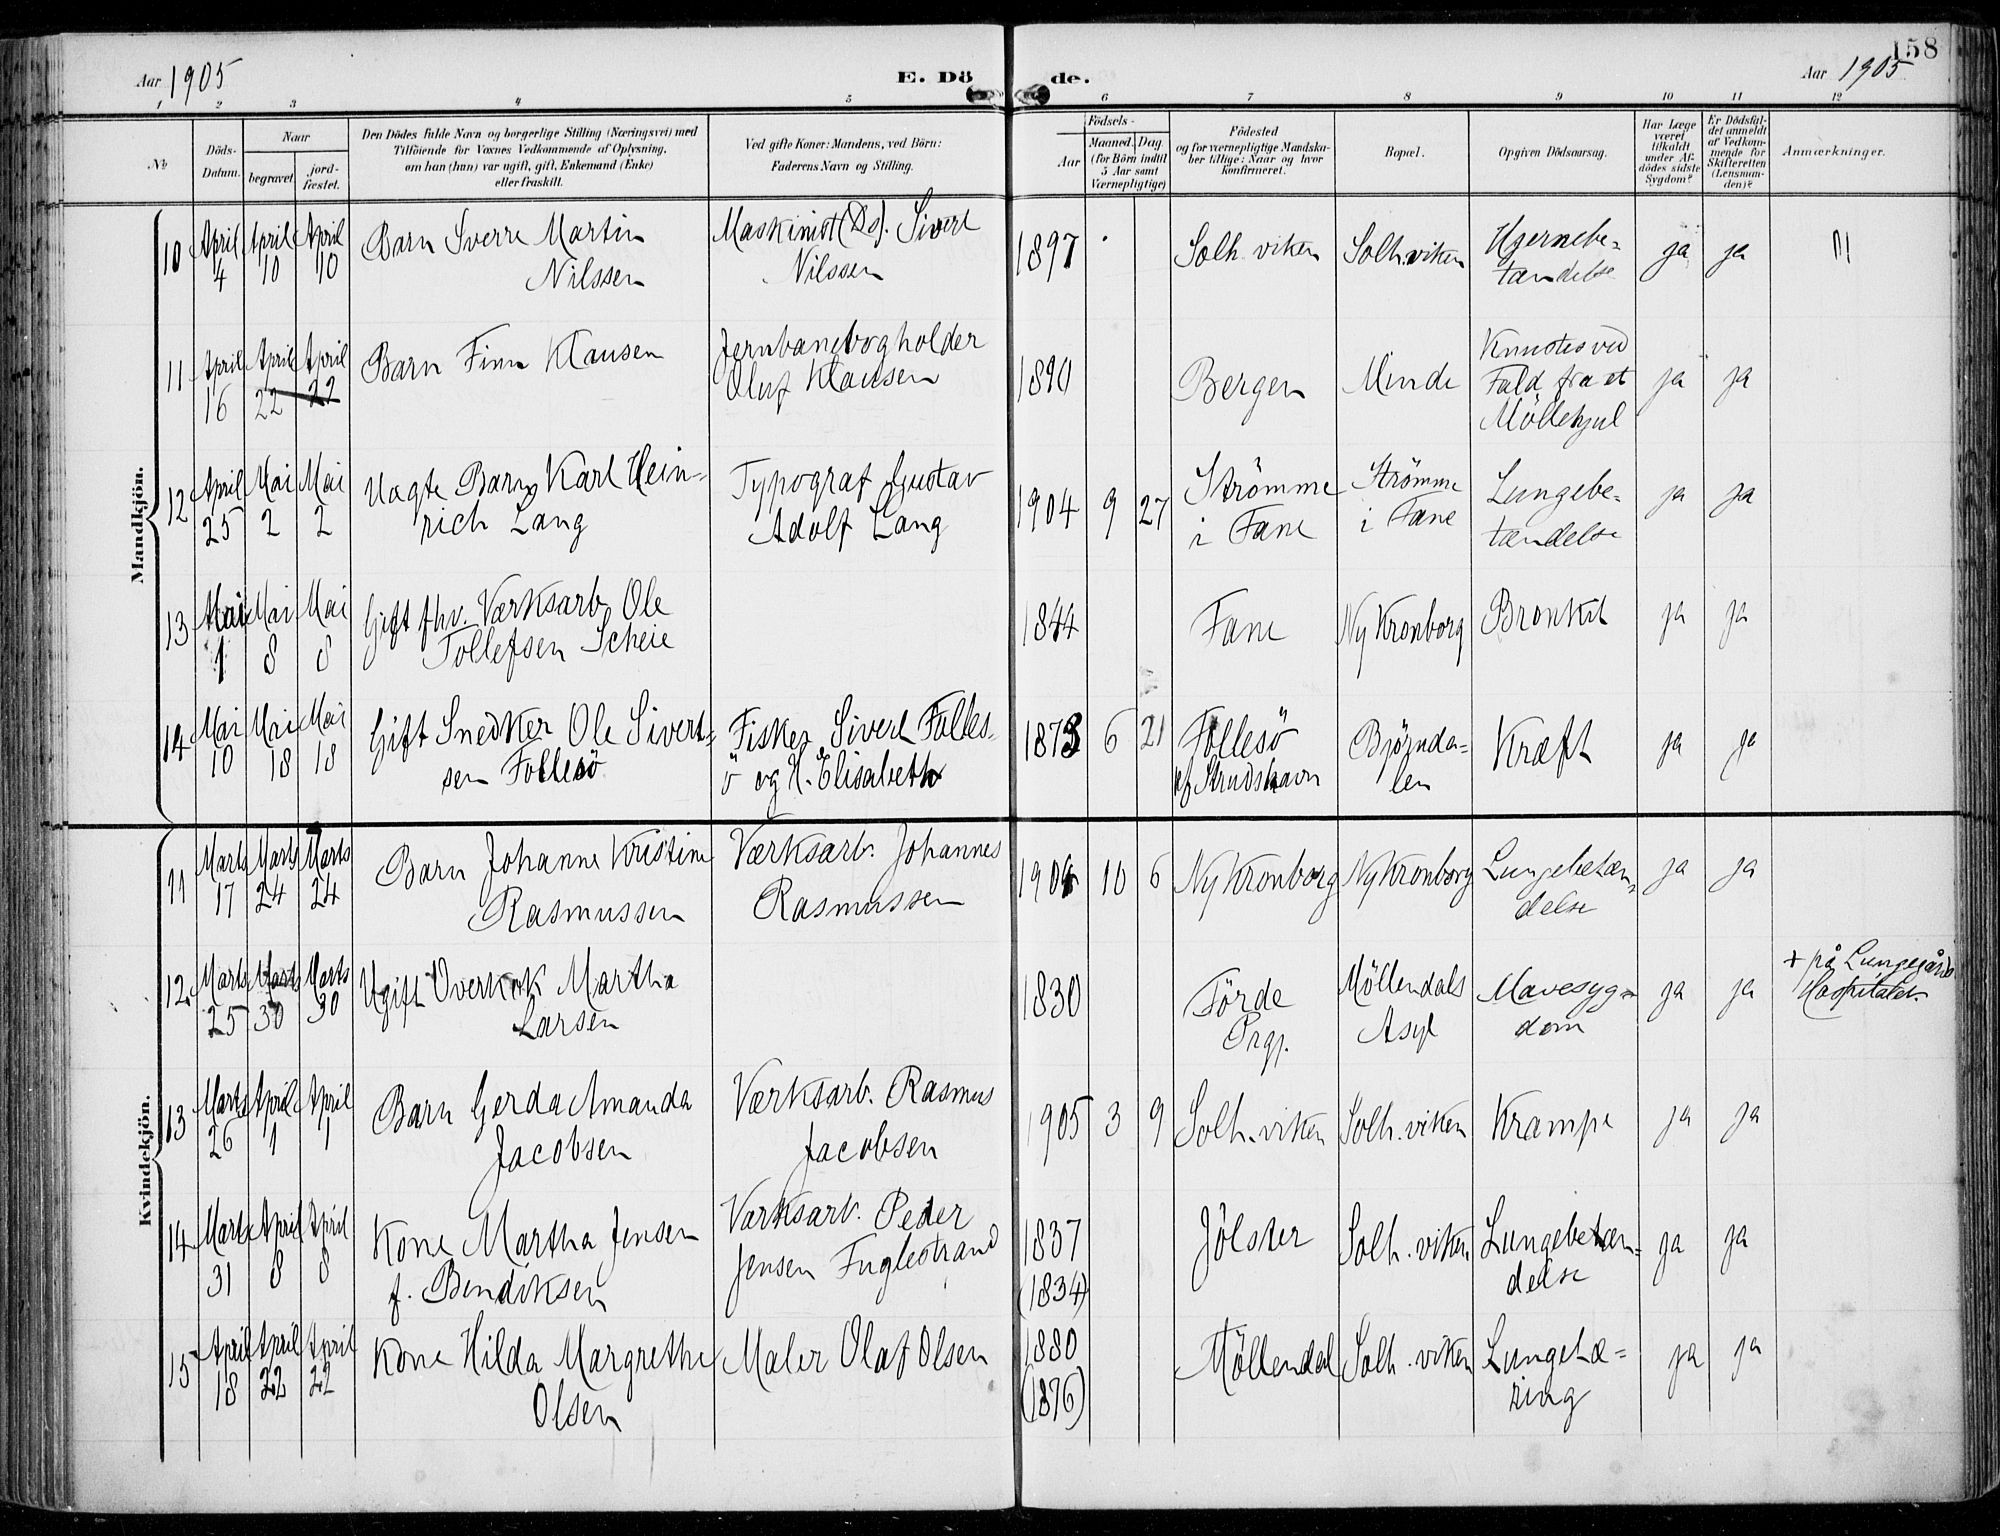 158
Aar 1905
E. Dö
de.
Aar 1905
1 2 3 4 5 6 7 8 9 10 11 12
No
Döds-
Datum.
Naar
begravet.
jord-
fæstet.
Den Dödes fulde Navn og borgerlige Stilling (Næringsvei) med
Tilföiende for Voxnes Vedkommende af Oplysning,
om han (hun) var ugift, gift, Enkemand (Enke)
eller fraskilt.
Ved gifte Koner: Mandens, ved Börn:
Faderens Navn og Stilling.
Födsels-
Aar
Maaned. Dag.
(for Börn indtil
5 Aar samt
Værnepligtige)
Födested
og for værnepligtige Mandska-
ber tillige: Naar og hvor
konfirmeret.
Bopæl.
Opgiven Dödsaarsag.
Har Læge
været
tilkaldt
under Af-
dödes sidste
Sygdom?
Er Dödsfal-
det anmeldt
af Vedkom-
mende for
Skifteretten
(Lensman-
den)?
Anmærkninger.
Mandkjön.
10 April 4 April 10 April 10
Barn Sverre Martin
Nilssen
Maskinist (Ds). Sivert
Nilssen
1897
Solh.viken
Solh.viken
Hjernebe-
tændelse
ja ja
11 April 16 April 22 April 22
Barn Finn Klausen
Jernbanebogholder
Oluf Klausen
1890
Bergen
Minde
Knustes ved
Fald fra et
Möllehjul
ja ja
12 April 25 Mai 2 Mai 2
Uægte Barn Karl Hein-
rich Lang
Typograf Gustav
Adolf Lang
1904 9 27
Strömme
i Fane
Strömme
i Fane
Lungebe-
tændelse
ja ja
13 Mai 1 Mai 8 Mai 8
Gift fhv. Værksarb. Ole
Tollefsen Scheie
1844
Fane
Ny Kronborg
Bronkit
ja ja
14 Mai 10 Mai 18 Mai 18
Gift Snedker Ole Sivert-
sen Follesö
Fisker Sivert Folles-
ö og H. Elisabeth
1873 6 21
Follesö
kf Strudshavn
Björnda-
len
Kræft
ja ja
Kvindekjön.
11 Marts 17 Marts 24 Marts 24
Barn Johanne Kristine
Rasmussen
Værksarb. Johannes
Rasmussen
1904 10 6
Ny Kronborg
Ny Kronborg
Lungebetæn-
delse
ja ja
12 Marts 25 Marts 30 Marts 30
Ugift Overkok Martha
Larsen
1830
Förde
Prgj.
Möllendals
Asyl
Mavesyg-
dom
ja ja
+ på Lungegårds
Hospitalet
13 Marts 26 April 1 April 1
Barn Gerda Amanda
Jacobsen
Værksarb. Rasmus
Jacobsen
1905 3 9
Solh.viken
Solh.viken
Krampe
ja ja
14 Marts 31 April 8 April 8
Kone Martha Jensen
f. Bendiksen
Værksarb. Peder
Jensen Fuglestrand
1837
(1834)
Jölster
Solh.viken
Lungebetæn-
delse
ja ja
15 April 18 April 22 April 22
Kone Hilda Margrethe
Olsen
Maler Olaf Olsen
1880
(1876)
Möllendal
Solh.viken
Lungetæ-
ring
ja ja